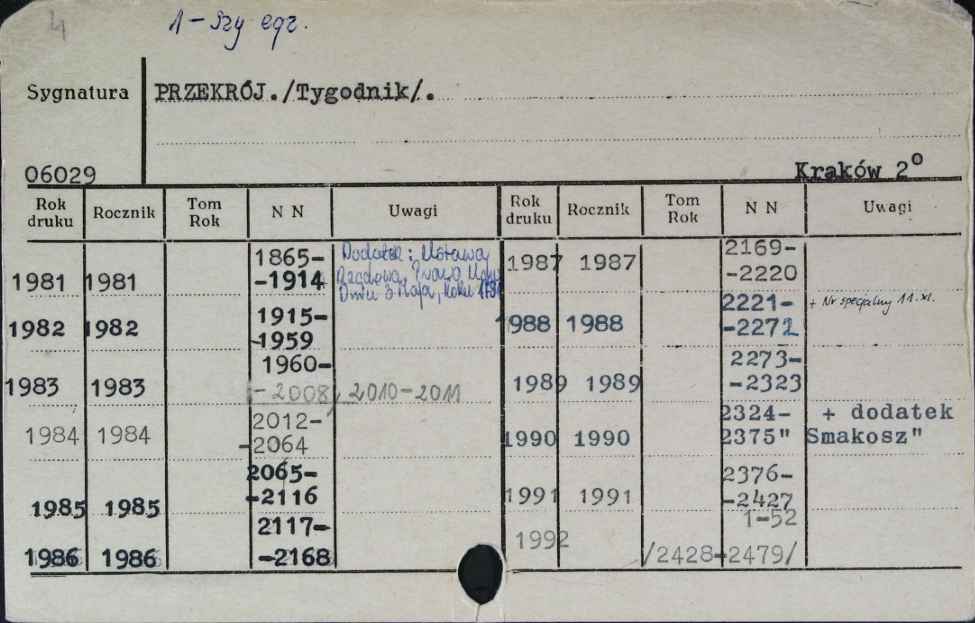 4
1-szy egz.
Sygnatura PRZEKRÓJ./Tygodnik/.
06029 Kraków 2º
Rok druku Rocznik Tom Rok N N Uwagi Rok druku Rocznik Tom Rok N N Uwagi
1981 1981 1865-
-1914 Dodatek: Ustawa
Rządowa, Prawo
Dnia 3 Maja, Roku
1982 1982 1915-
-1959
1983 1983 1960-
-2008, 2010-2011
1984 1984 2012-
-2064
1985 1985 2065-
-2116
1986 1986 2117-
-2168
1987 1987 2169-
-2220
1988 1988 2221-
-2272 + Nr specjalny 11.XI.
1989 1989 2273-
-2323
1990 1990 2324- + dodatek
2375" Smakosz"
1991 1991 2376-
-2427
1992 1-52
/2428-2479/